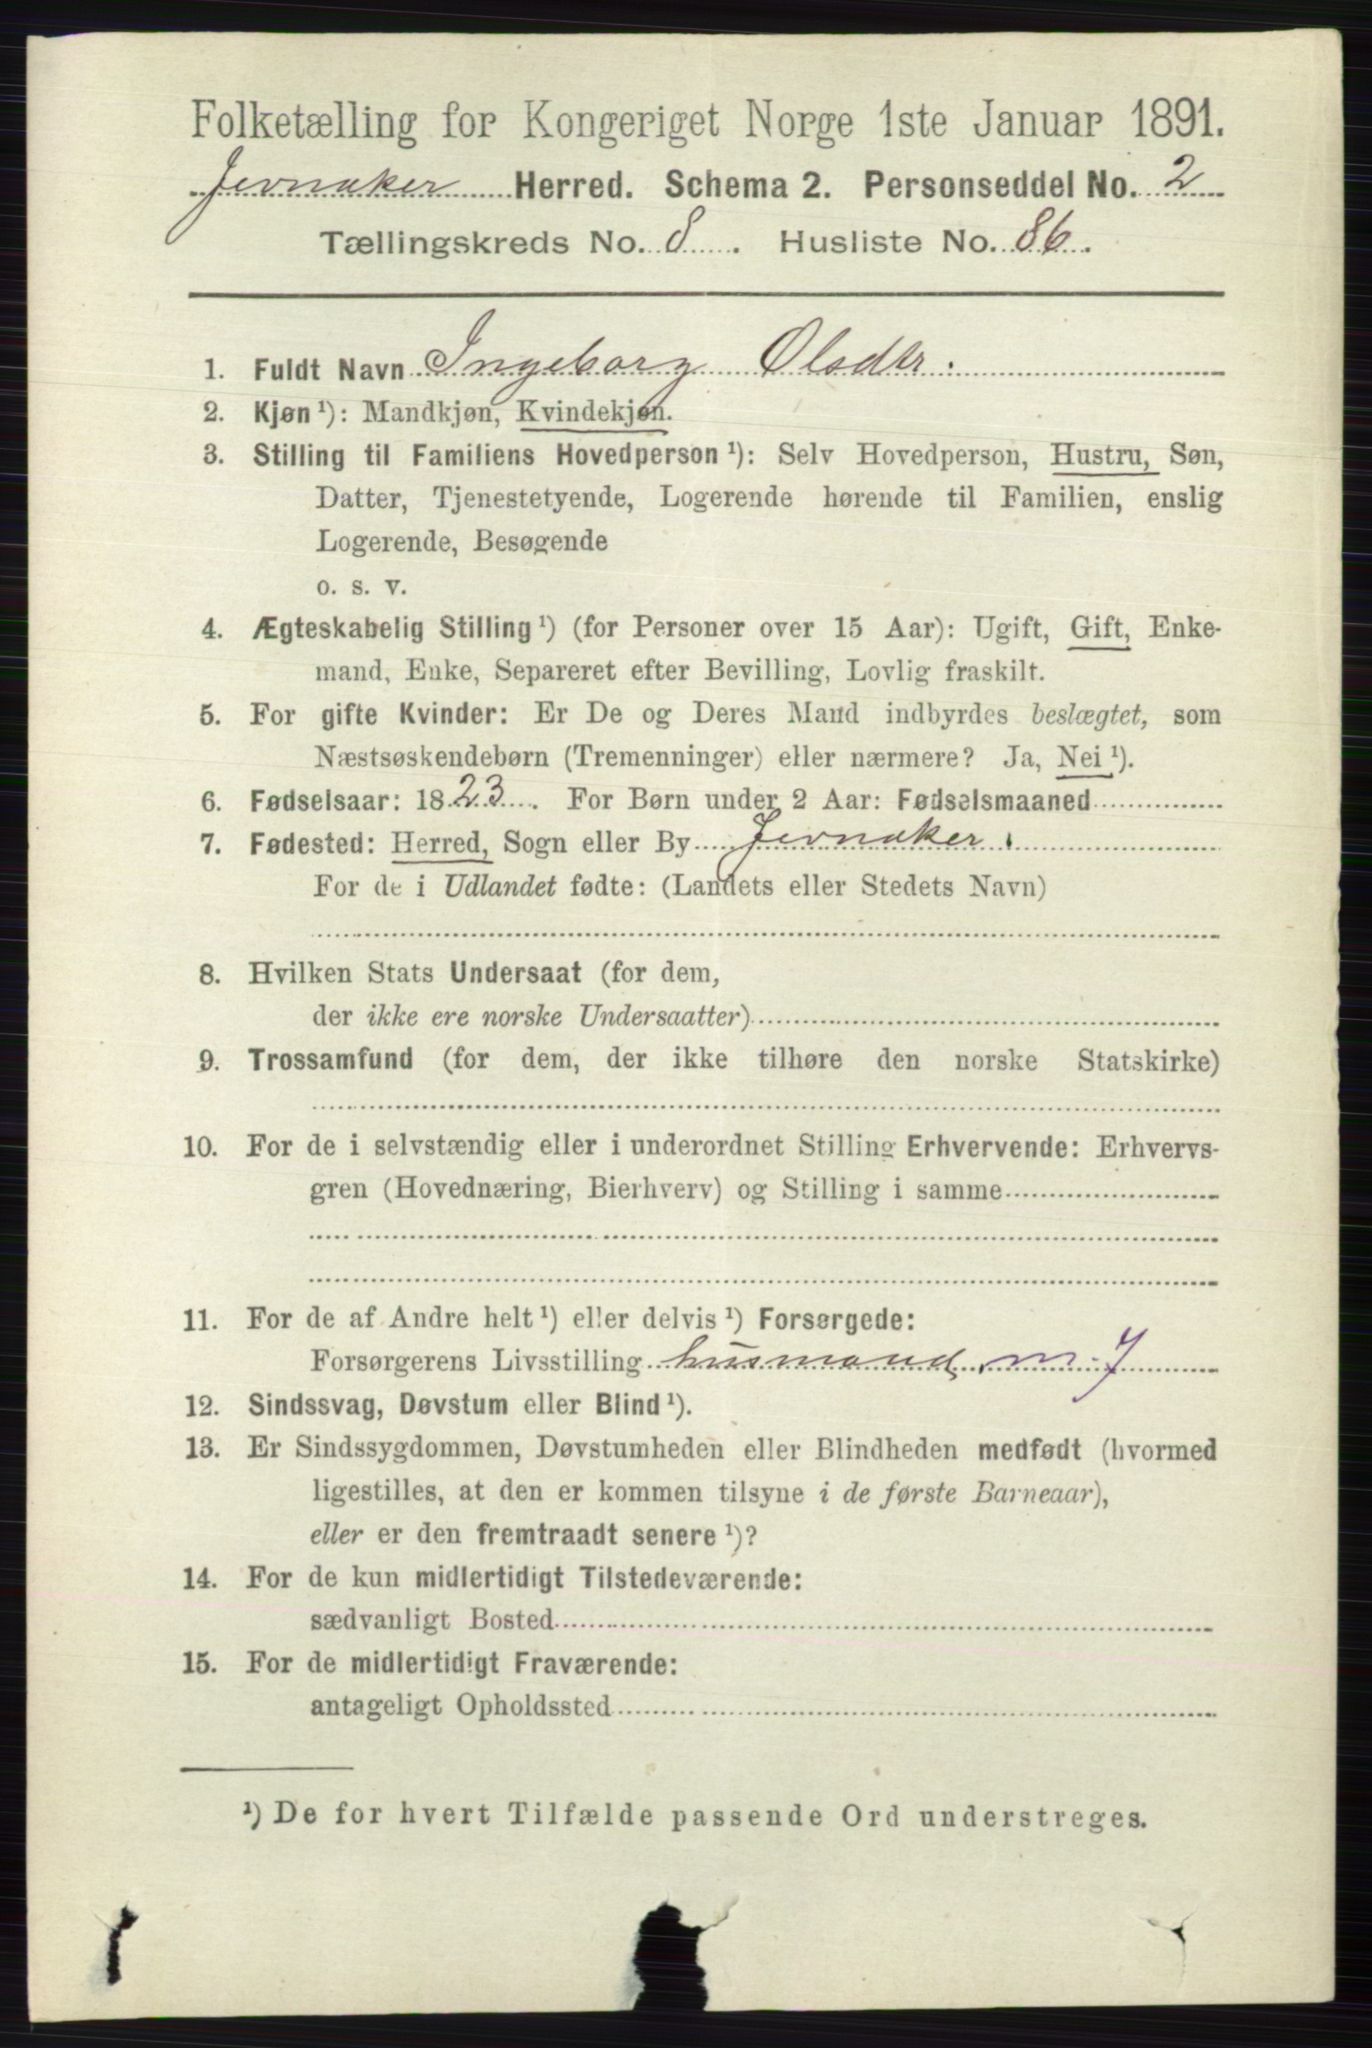 Folketælling for Kongeriget Norge 1ste Januar 1891.
Jevnaker Herred. Schema 2. Personseddel No. 2
Tællingskreds No. 8. Husliste No. 86.
1. Fuldt Navn Ingeborg Olsdtr.
2. Kjøn ¹): Mandkjøn, Kvindekjøn.
3. Stilling til Familiens Hovedperson ¹): Selv Hovedperson, Hustru, Søn,
Datter, Tjenestetyende, Logerende hørende til Familien, enslig
Logerende, Besøgende
o. s. v.
4. Ægteskabelig Stilling ¹) (for Personer over 15 Aar): Ugift, Gift, Enke-
mand, Enke, Separeret efter Bevilling, Lovlig fraskilt.
5. For gifte Kvinder: Er De og Deres Mand indbyrdes beslægtet, som
Næstsøskendebørn (Tremenninger) eller nærmere? Ja, Nei ¹).
6. Fødselsaar: 1823. For Børn under 2 Aar: Fødselsmaaned
7. Fødested: Herred, Sogn eller By Jevnaker.
For de i Udlandet fødte: (Landets eller Stedets Navn)
8. Hvilken Stats Undersaat (for dem,
der ikke ere norske Undersaatter)
9. Trossamfund (for dem, der ikke tilhøre den norske Statskirke)
10. For de i selvstændig eller i underordnet Stilling Erhvervende: Erhvervs-
gren (Hovednæring, Bierhverv) og Stilling i samme
11. For de af Andre helt ¹) eller delvis ¹) Forsørgede:
Forsørgerens Livsstilling husmand m. J
12. Sindssvag, Døvstum eller Blind ¹).
13. Er Sindssygdommen, Døvstumheden eller Blindheden medfødt (hvormed
ligestilles, at den er kommen tilsyne i de første Barneaar),
eller er den fremtraadt senere ¹)?
14. For de kun midlertidigt Tilstedeværende:
sædvanligt Bosted
15. For de midlertidigt Fraværende:
antageligt Opholdssted
¹) De for hvert Tilfælde passende Ord understreges.